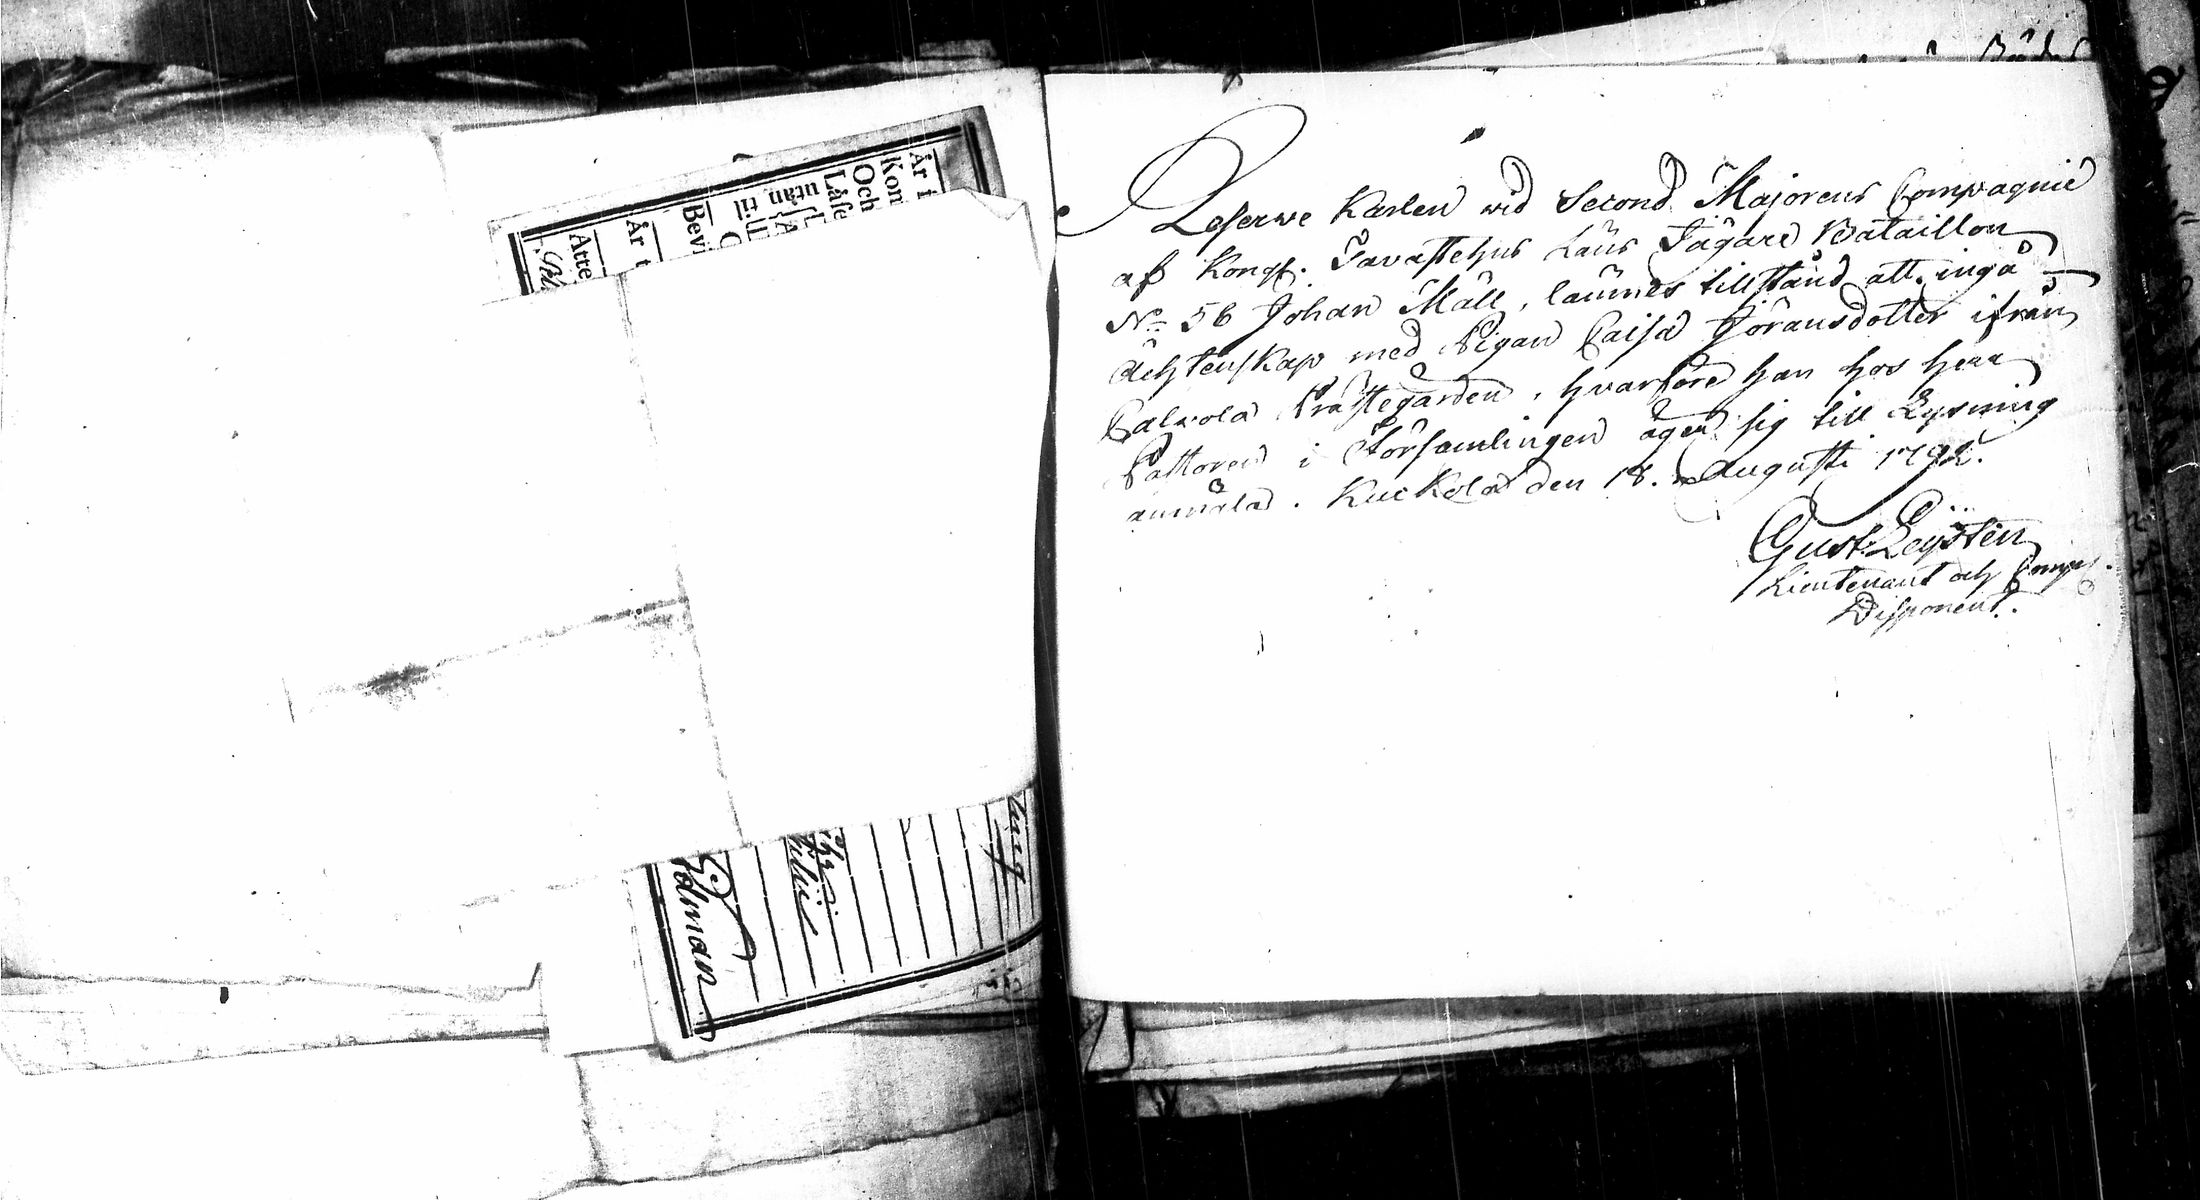 År i
Kom
Och
Läse
utan til
Bevi
År t
Atte
olman
Reserwe Karlen wid Second Majorens Compagnie
af Kongl. Tavastehus Läns Jägare Bataillon
No 56 Johan Mäll, lämnes tillstånd att ingå
Ächtenskap med Pigan Caisa Jöransdotter ifrån
Calvola Prästegården, hvarföre han hos herr
Pastoren i Församlingen äger sig till Lysning
anmäla. Kuckola den 18. Augusti 1792.
Gust. Leÿsten
Lieutenant och Comp.
Disponent.